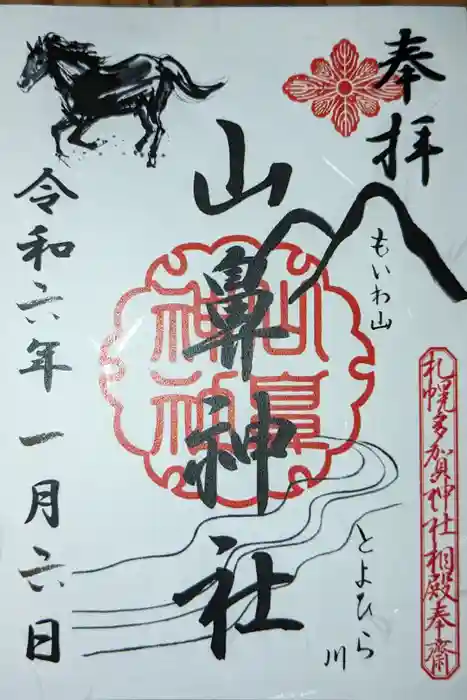 奉拝
もいわ山
札幌多賀神社相殿奉齋
山鼻神社
山鼻神社
とよひら川
令和六年一月六日